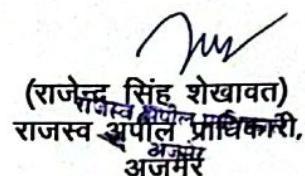 (राजेन्द्र सिंह शेखावत)
राजस्व अपील प्राधिकारी,
राजस्व अपील
अजमेर
अजमेर